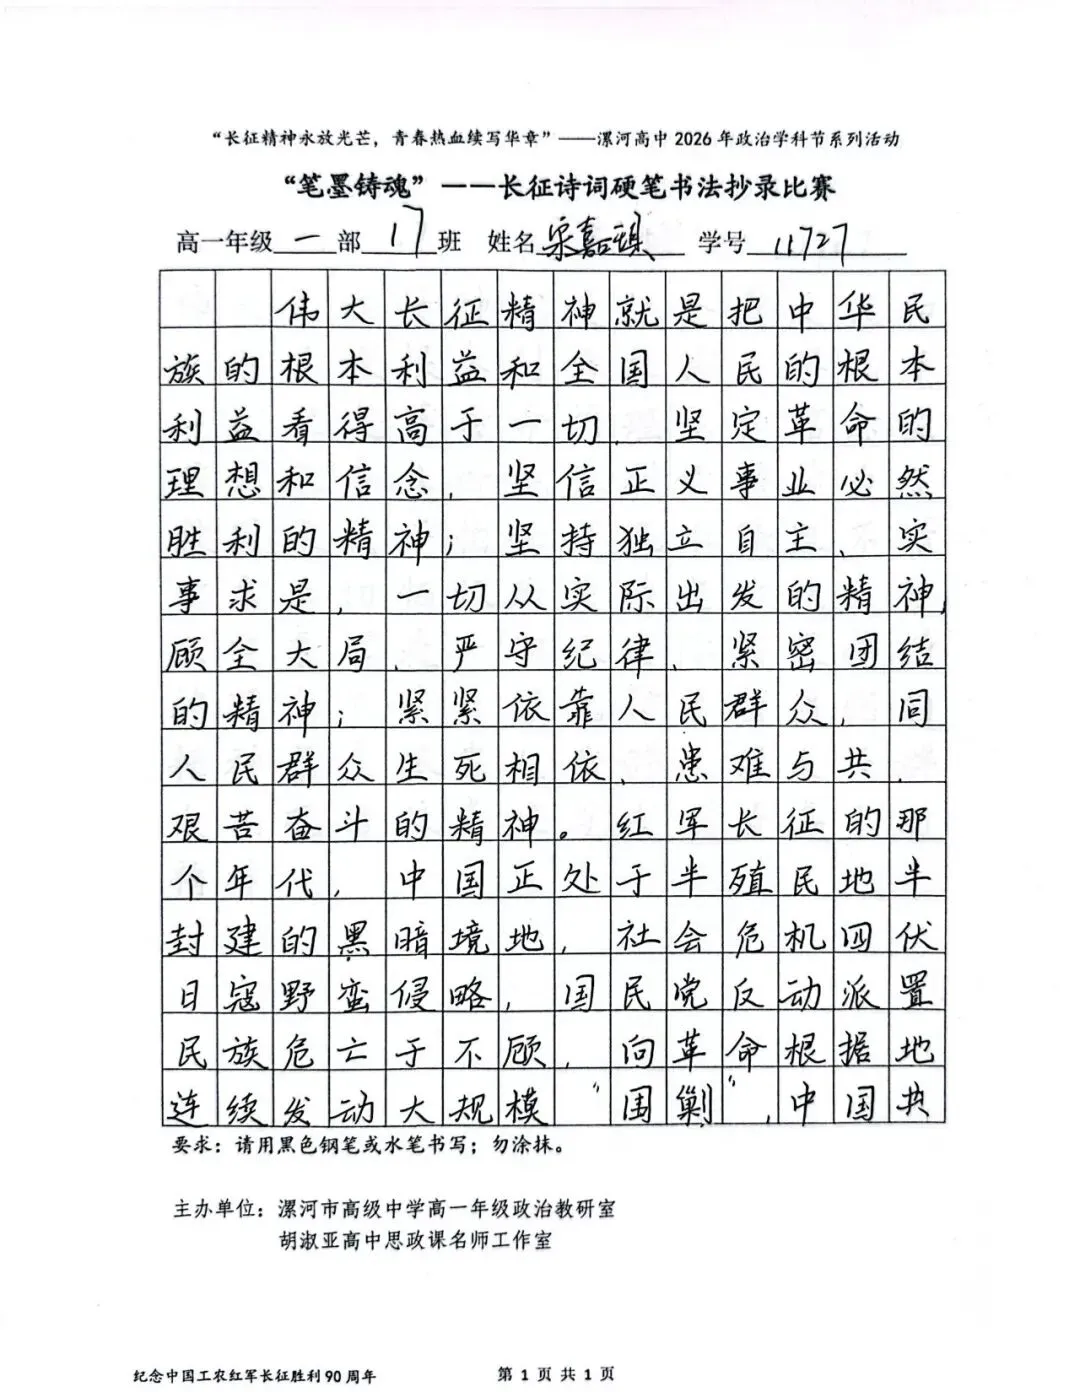 “长征精神永放光芒，青春热血续写华章”——漯河高中 2026 年政治学科节系列活动
“笔墨铸魂”——长征诗词硬笔书法抄录比赛
高一年级 一 部 17 班 姓名 宋嘉琪 学号 11727
伟大长征精神就是把中华民
族的根本利益和全国人民的根本
利益看得高于一切，坚定革命的
理想和信念，坚信正义事业必然
胜利的精神；坚持独立自主、实
事求是，一切从实际出发的精神，
顾全大局、严守纪律、紧密团结
的精神；紧紧依靠人民群众，同
人民群众生死相依、患难与共、
艰苦奋斗的精神。红军长征的那
个年代，中国正处于半殖民地半
封建的黑暗境地，社会危机四伏
日寇野蛮侵略，国民党反动派置
民族危亡于不顾，向革命根据地
连续发动大规模“围剿”，中国共
要求：请用黑色钢笔或水笔书写；勿涂抹。
主办单位：漯河市高级中学高一年级政治教研室
胡淑亚高中思政课名师工作室
纪念中国工农红军长征胜利 90 周年
第 1 页 共 1 页